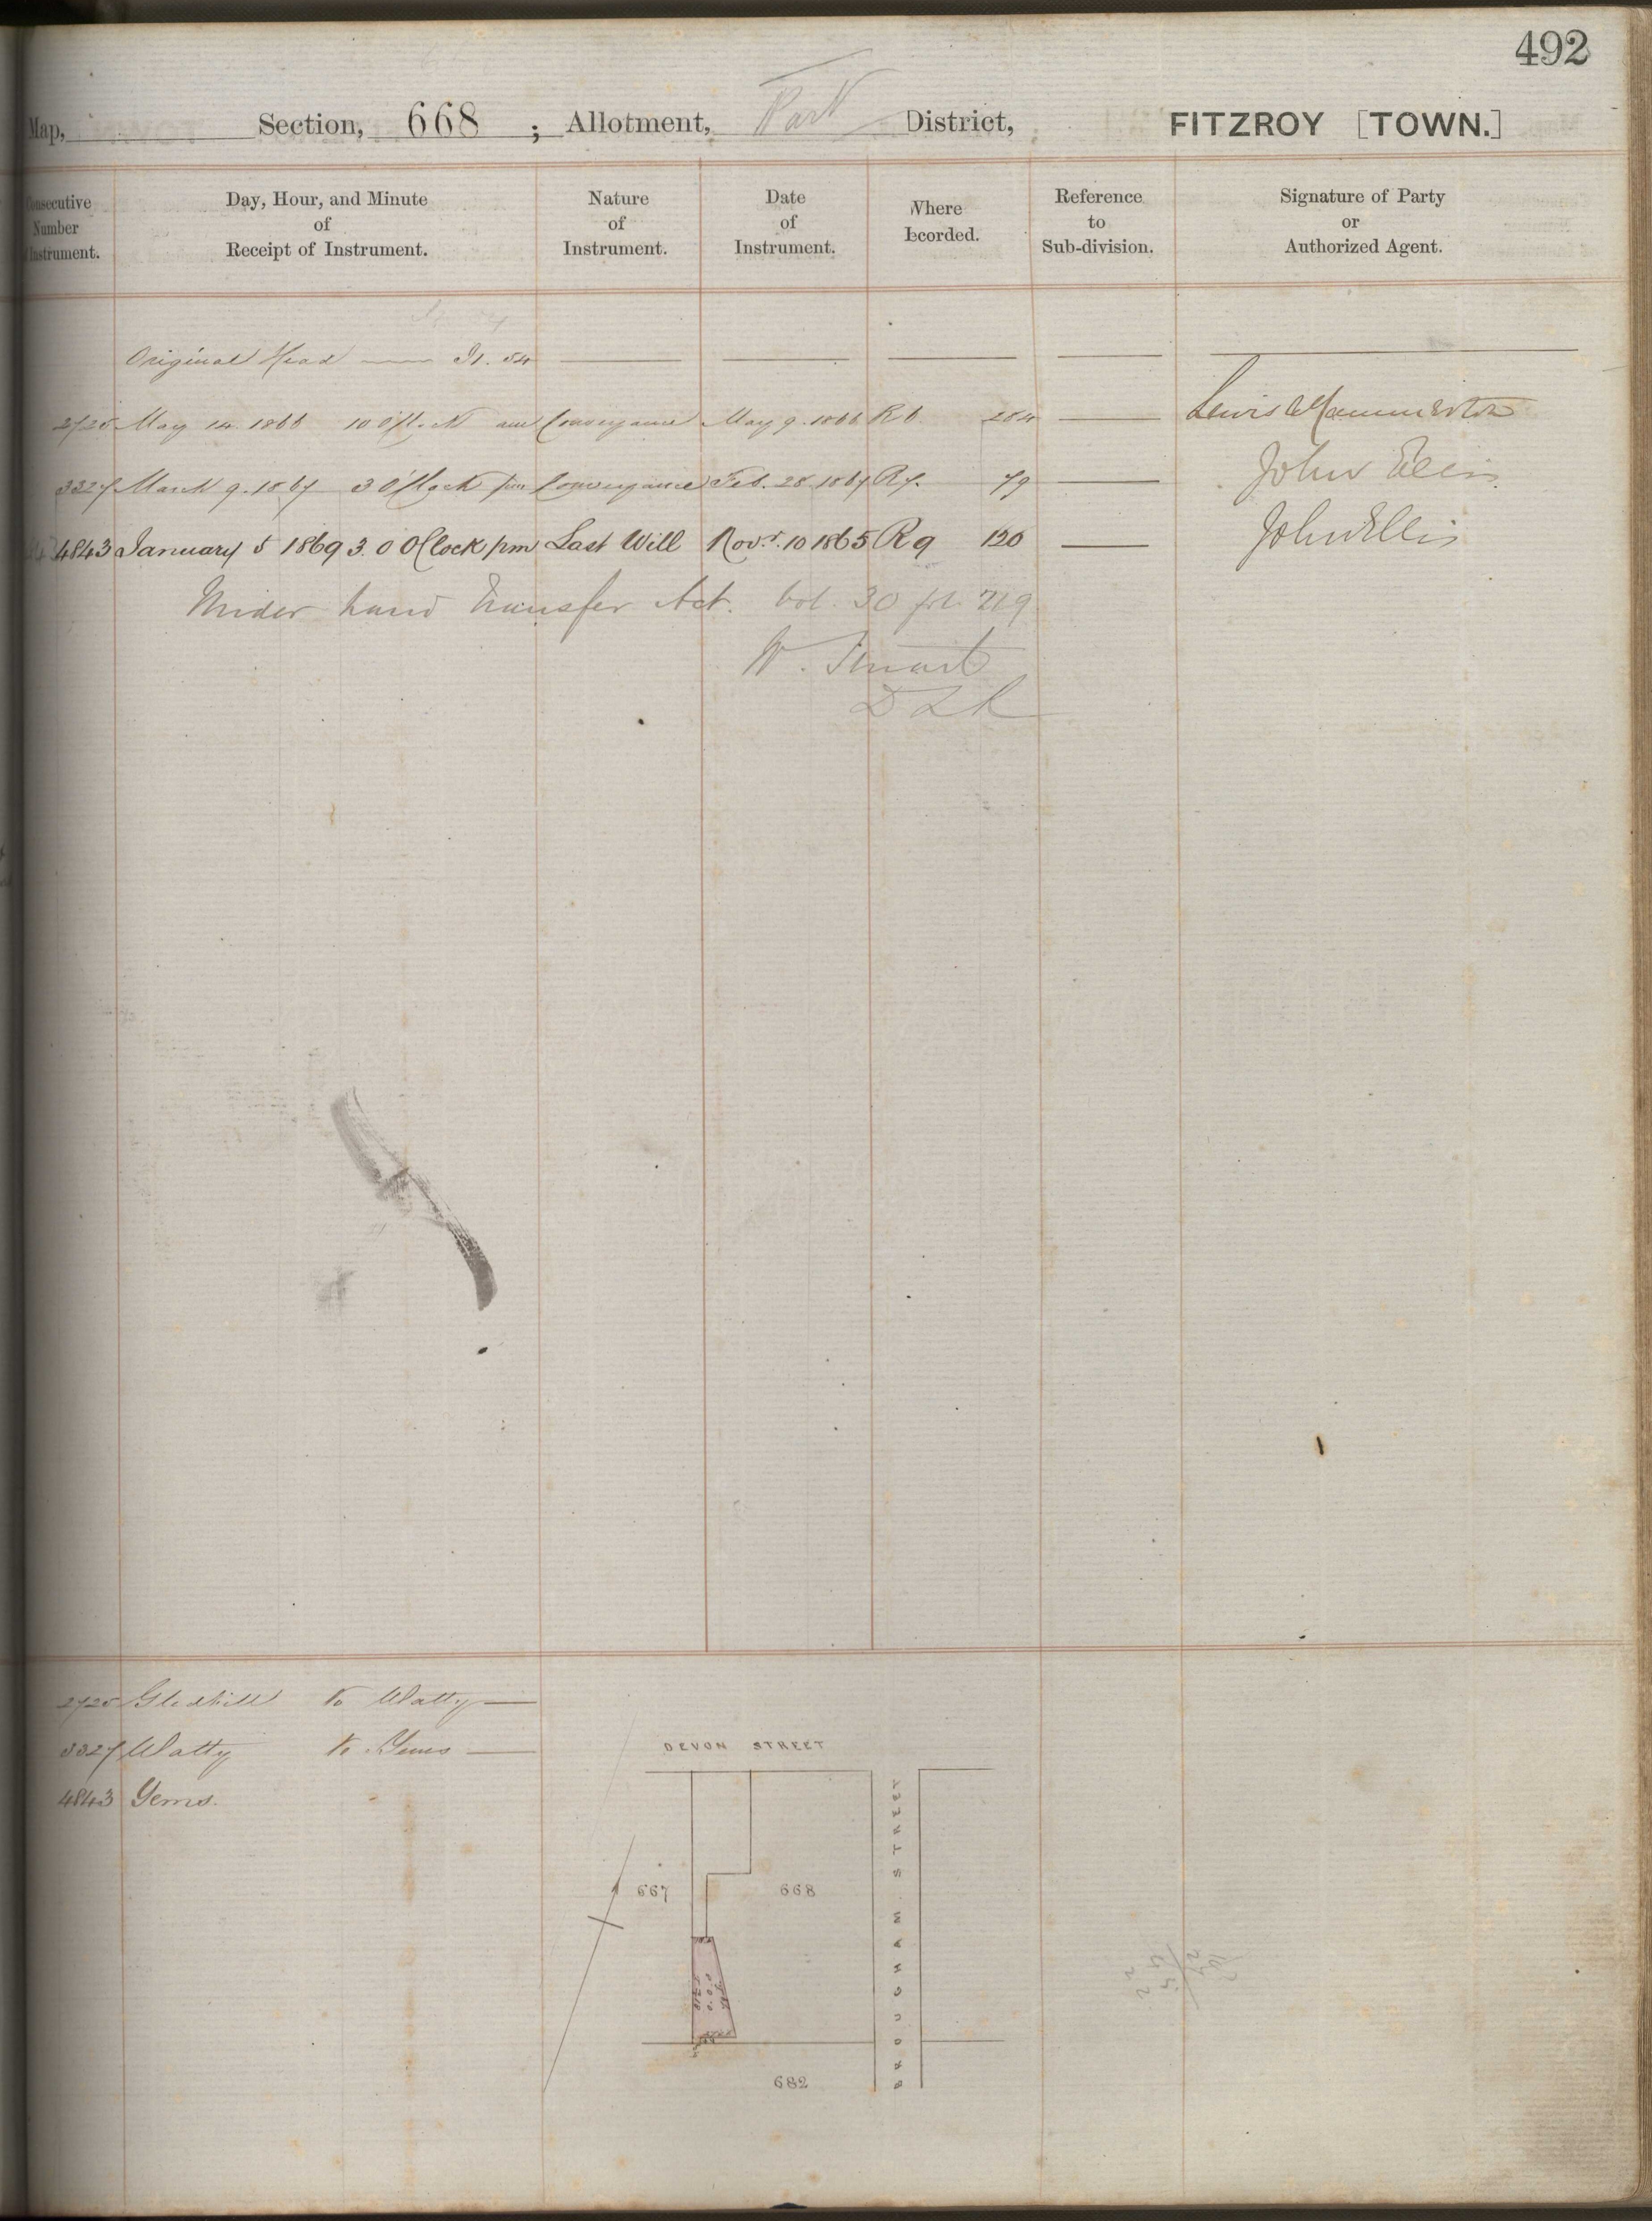 492
Map, Section, 668 ; Allotment, Part District, FITZROY [TOWN.]
Consecutive Number Instrument.
Day, Hour, and Minute of Receipt of Instrument.
Nature of Instrument.
Date of Instrument.
Where Recorded.
Reference to Sub-division.
Signature of Party or Authorized Agent.
Original Head
2725 May 14. 1866 10 am Conveyance May 9. 1866 R6 284 Lewis
3327 March 9. 1867 3 O'Clock pm Conveyance Feb. 28 1867 R7. 79 John Ellis
4843 January 5 1869 3.0 O'Clock pm Last Will Novr. 10 1865 R9 120 John Ellis
Under Land Transfer Act. Vol. 30 fol. 219
W. Stuart
DLR
2725 Gledhill to Watty
3327 Watty to Yems
4843 Yems.
DEVON STREET
BROUGHAM STREET
667
668
682